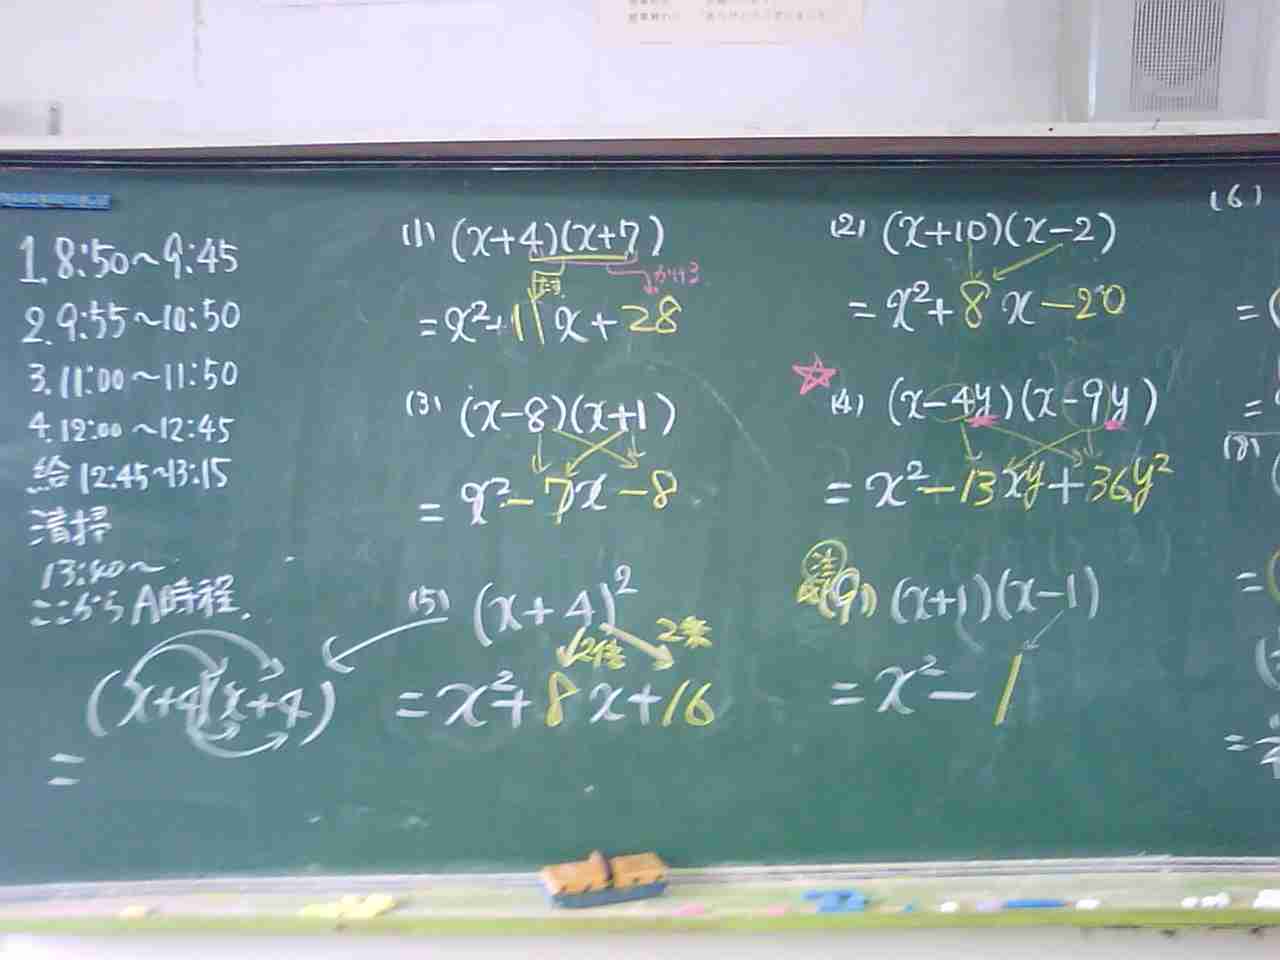 1. 8:50～9:45
2. 9:55～10:50
3. 11:00～11:50
4. 12:00～12:45
給 12:45～13:15
清掃
13:40～
ここからA時程.
(x+4)(x+4)
=
(1) (x+4)(x+7)
たす かける
= x²+11x+28
(2) (x+10)(x-2)
= x²+8x-20
(3) (x-8)(x+1)
= x²-7x-8
☆ (4) (x-4y)(x-9y)
= x²-13xy+36y²
(5) (x+4)²
2倍 2乗
= x²+8x+16
注
(9) (x+1)(x-1)
= x²-1
(6)
=
=
(8)
=
=